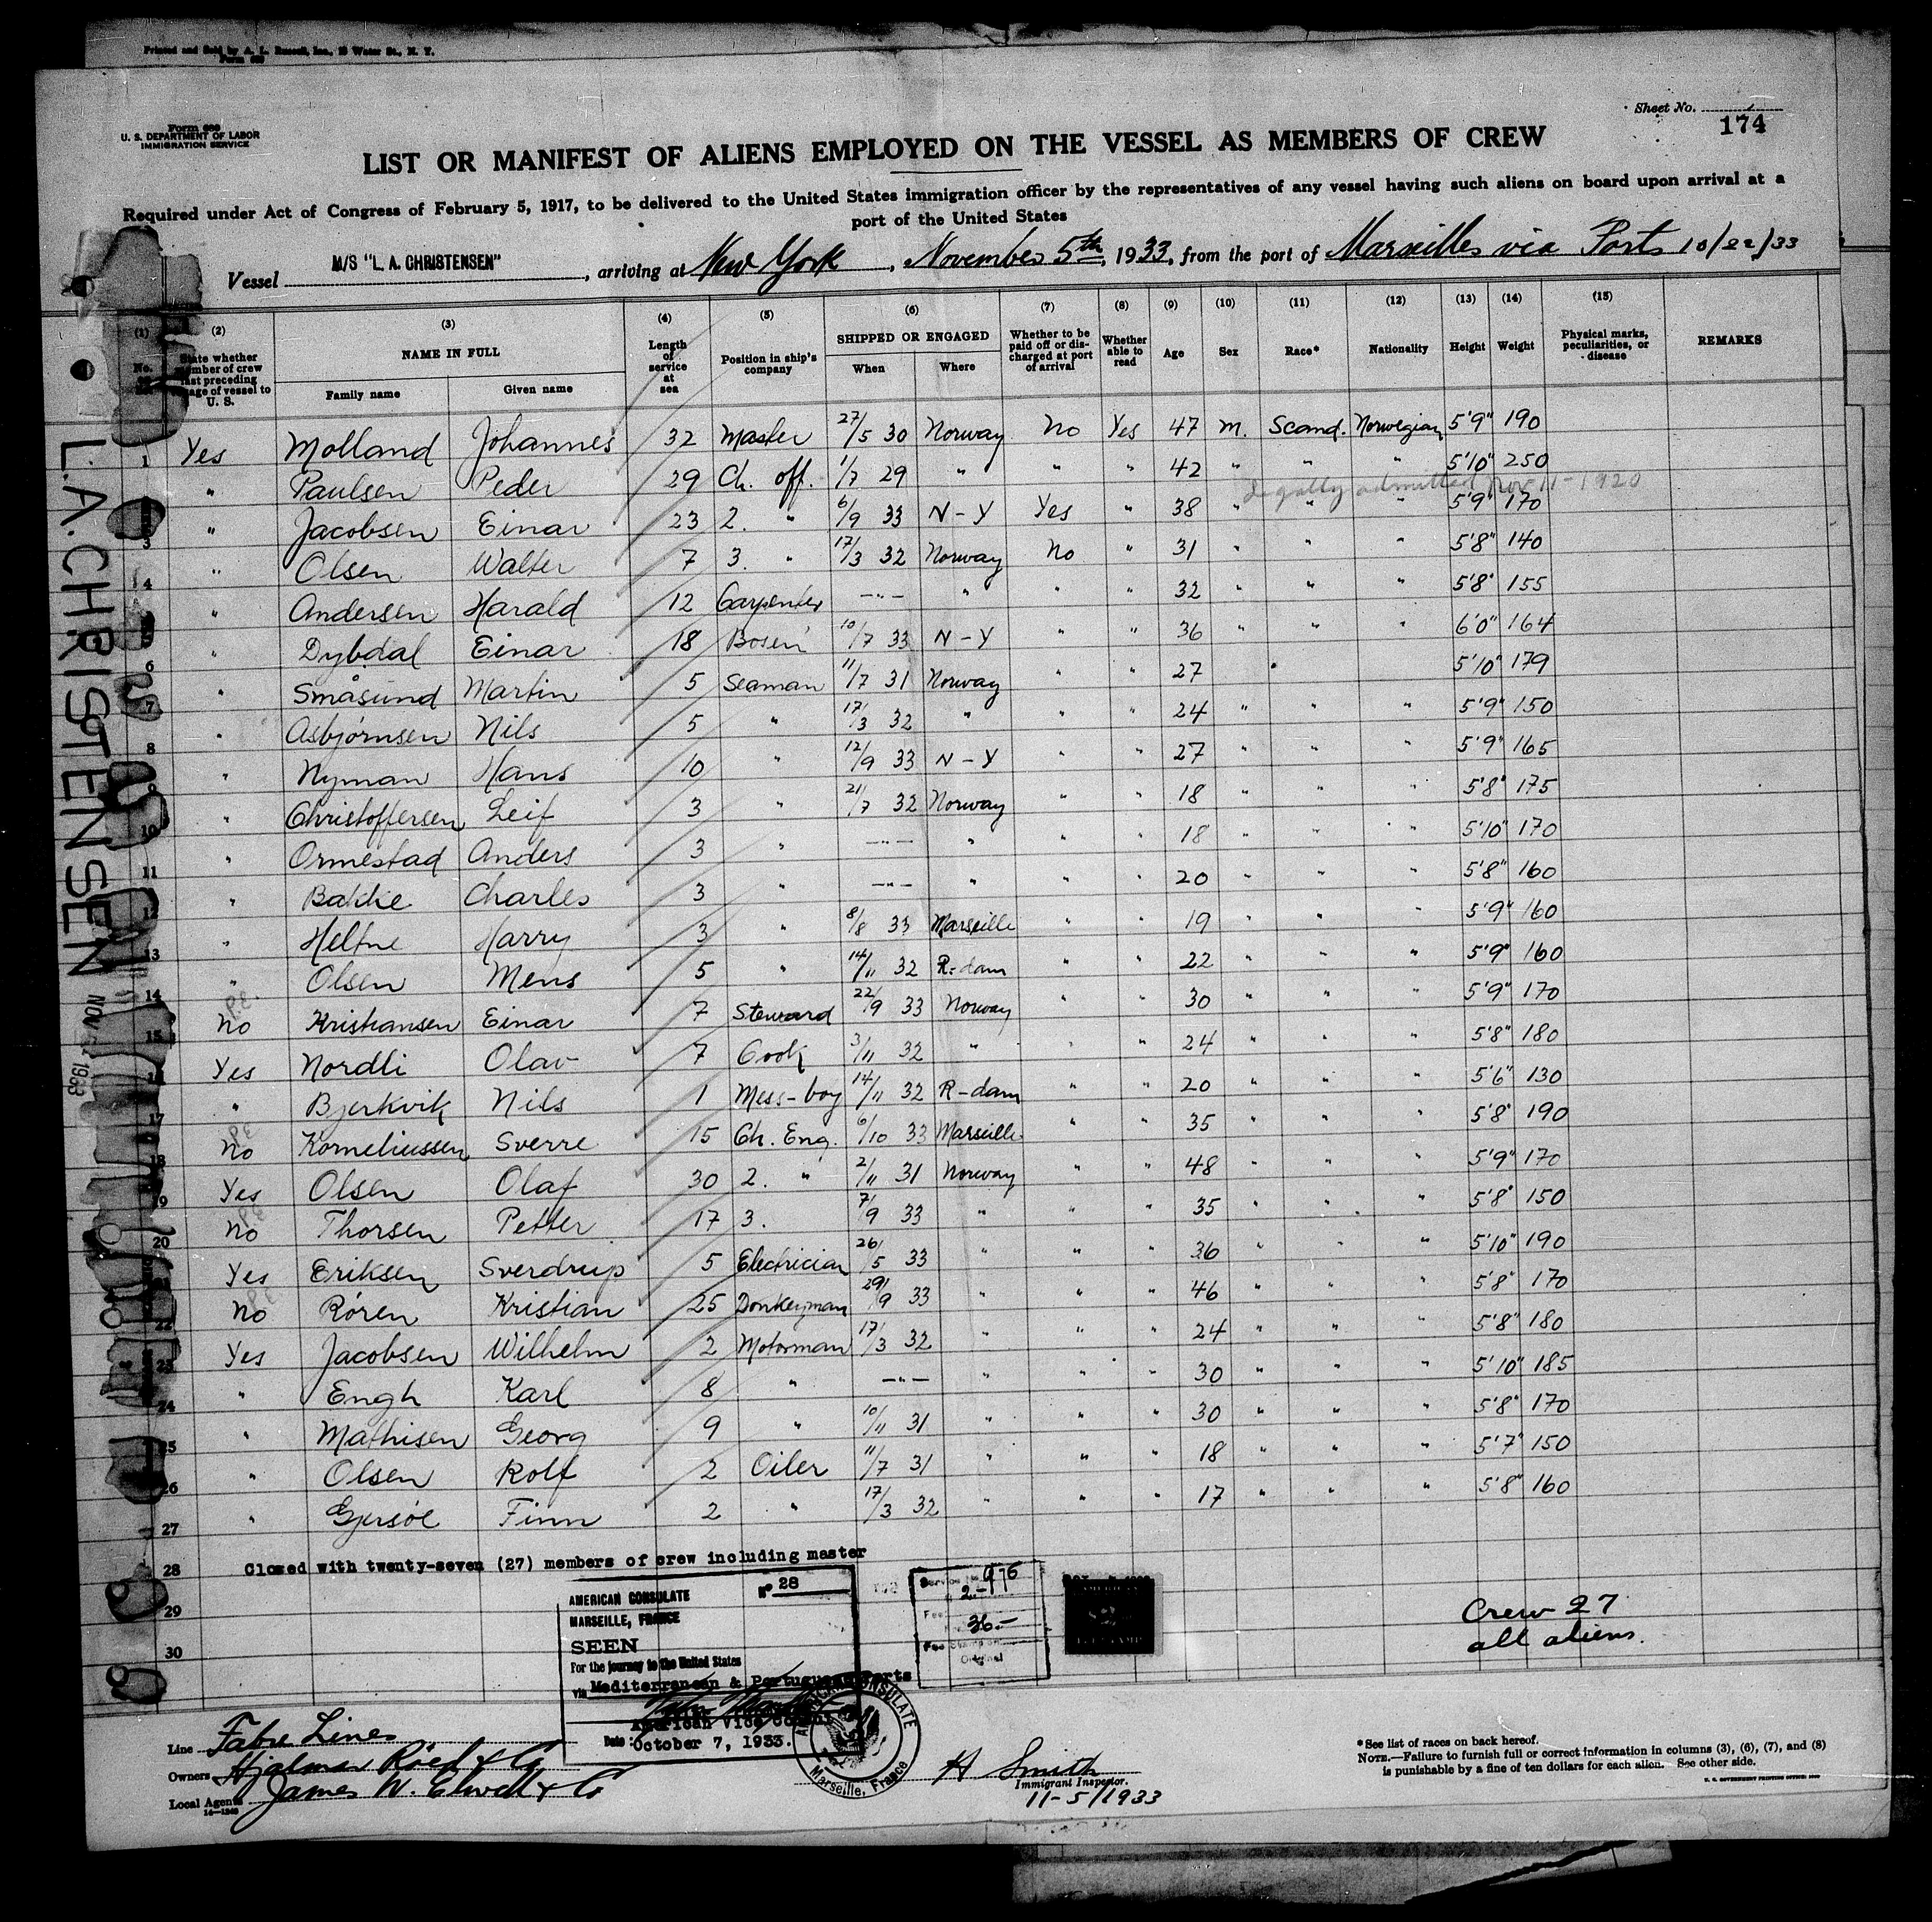 Printed and Sold by A. L. Russell, Inc., 15 Water St., N. Y.
Form 689
Sheet No.
174
Form 689
U. S. DEPARTMENT OF LABOR
IMMIGRATION SERVICE
LIST OR MANIFEST OF ALIENS EMPLOYED ON THE VESSEL AS MEMBERS OF CREW
Required under Act of Congress of February 5, 1917, to be delivered to the United States immigration officer by the representatives of any vessel having such aliens on board upon arrival at a
port of the United States
Vessel M/S "L. A. CHRISTENSEN", arriving at New York, November 5th, 1933, from the port of Marseilles via Ports 10/22/33
(1) (2) (3) (4) (5) (6) (7) (8) (9) (10) (11) (12) (13) (14) (15)
No. State whether member of crew last preceding voyage of vessel to U. S. NAME IN FULL Family name Given name Length of service at sea Position in ship's company SHIPPED OR ENGAGED When Where Whether to be paid off or discharged at port of arrival Whether able to read Age Sex Race* Nationality Height Weight Physical marks, peculiarities, or disease REMARKS
1 Yes Molland Johannes 32 Master 27/5 30 Norway No Yes 47 M. Scand. Norwegian 5'9" 190
" Paulsen Peder 29 Ch. off. 1/7 29 " " " 42 " " " 5'10" 250
Legally admitted Nov 11-1920
3 " Jacobsen Einar 23 2. " 6/9 33 N-Y Yes " 38 " " " 5'9" 170
4 " Olsen Walter 7 3. " 17/3 32 Norway No " 31 " " " 5'8" 140
" Andersen Harald 12 Carpenter -"- " " " 32 " " " 5'8" 155
6 " Dybdal Einar 18 Bosen 10/7 33 N-Y " " 36 " " " 6'0" 164
7 " Småsund Martin 5 Seaman 11/7 31 Norway " " 27 " 5'10" 179
8 " Asbjørnsen Nils 5 " 17/3 32 " " " 24 " " " 5'9" 150
9 " Nyman Hans 10 " 12/9 33 N-Y " " 27 " " " 5'9" 165
10 " Christoffersen Leif 3 " 21/7 32 Norway " " 18 " " " 5'8" 175
11 " Ormestad Anders 3 " -"- " " " 18 " " " 5'10" 170
12 " Bakke Charles 3 " -"- " " " 20 " " " 5'8" 160
13 " Heltne Harry 3 " 8/8 33 Marseille " " 19 " " " 5'9" 160
14 " Olsen Mens 5 " 14/11 32 R-dam " " 22 " " " 5'9" 160
15 No Kristiansen Einar 7 Steward 22/9 33 Norway " " 30 " " " 5'9" 170
Yes Nordli Olav 7 Cook 3/11 32 " " " 24 " " " 5'8" 180
17 " Bjerkvik Nils 1 Mess-boy 14/11 32 R-dam " " 20 " " " 5'6" 130
18 No Korneliussen Sverre 15 Ch. Eng. 6/10 33 Marseille " " 35 " " " 5'8" 190
19 Yes Olsen Olaf 30 2. " 2/11 31 Norway " " 48 " " " 5'9" 170
20 No Thorsen Petter 17 3. 7/9 33 " " " 35 " " " 5'8" 150
Yes Eriksen Sverdrup 5 Electrician 26/5 33 " " " 36 " " " 5'10" 190
22 No Røren Kristian 25 Donkeyman 29/9 33 " " " 46 " " " 5'8" 170
23 Yes Jacobsen Wilhelm 2 Motorman 17/3 32 " " " 24 " " " 5'8" 180
24 " Engh Karl 8 " -"- " " " 30 " " " 5'10" 185
25 " Mathisen Georg 9 " 10/11 31 " " " 30 " " " 5'8" 170
26 " Olsen Rolf 2 Oiler 11/7 31 " " " 18 " " " 5'7" 150
27 " Gjersöe Finn 2 " 17/3 32 " " " 17 " " " 5'8" 160
28 Closed with twenty-seven (27) members of crew including master
29
30
L.A. CHRISTENSEN
NOV 1933
AMERICAN CONSULATE
No 28
MARSEILLE, FRANCE
SEEN
For the journey to the United States
via Mediterranean & Portuguese Ports
American Vice Consul
Date: October 7, 1933.
976
36.-
AMERICAN CONSULATE
Marseille, France
Crew 27
all aliens.
Line Fabre Lines
Owners Hjalmar Röed & Co
Local Agents James W. Elwell & Co
H Smith
Immigrant Inspector.
11-5/1933
*See list of races on back hereof.
NOTE.—Failure to furnish full or correct information in columns (3), (6), (7), and (8)
is punishable by a fine of ten dollars for each alien. See other side.